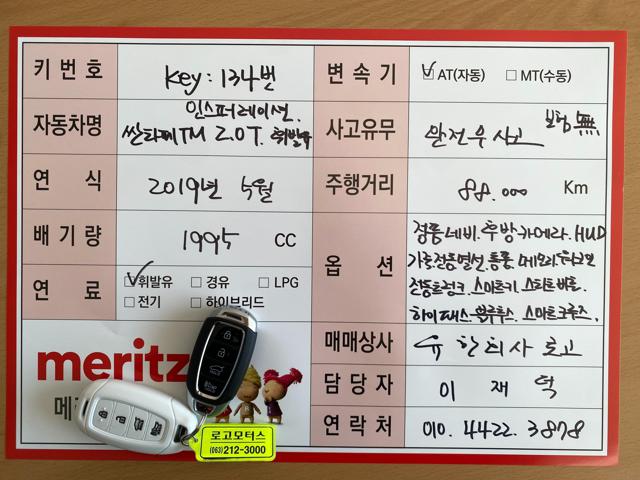 키 번 호 Key: 134번
변 속 기 ☑ AT(자동) □ MT(수동)
자동차명 인스퍼레이션.
싼타페TM 2.0T. 휘발유
사고유무 완전무사고 보험無
연 식 2019년 5월
주행거리 88.000 Km
배 기 량 1995 CC
옵 션 정품네비.후방카메라.HUD
가죽전동열선.통풍.메모리
전동트렁크.스마트키.스타트버튼.
하이패스.블루투스.스마트크루즈.
연 료 ☑ 휘발유 □ 경유 □ LPG
□ 전기 □ 하이브리드
매매상사 유한회사 로고
담 당 자 이 재 덕
연 락 처 010. 4422. 3878
meritz
메
로고모터스
(063)212-3000